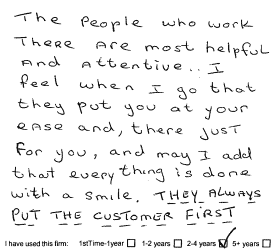 The people who work
There are most helpful
and attentive.. I
feel when I go that
they put you at your
ease and, there just
for you, and may I add
that every thing is done
with a smile. They always
put the customer first
I have used this firm: 1stTime-1year ☐ 1-2 years ☐ 2-4 years ☑ 5+ years ☐